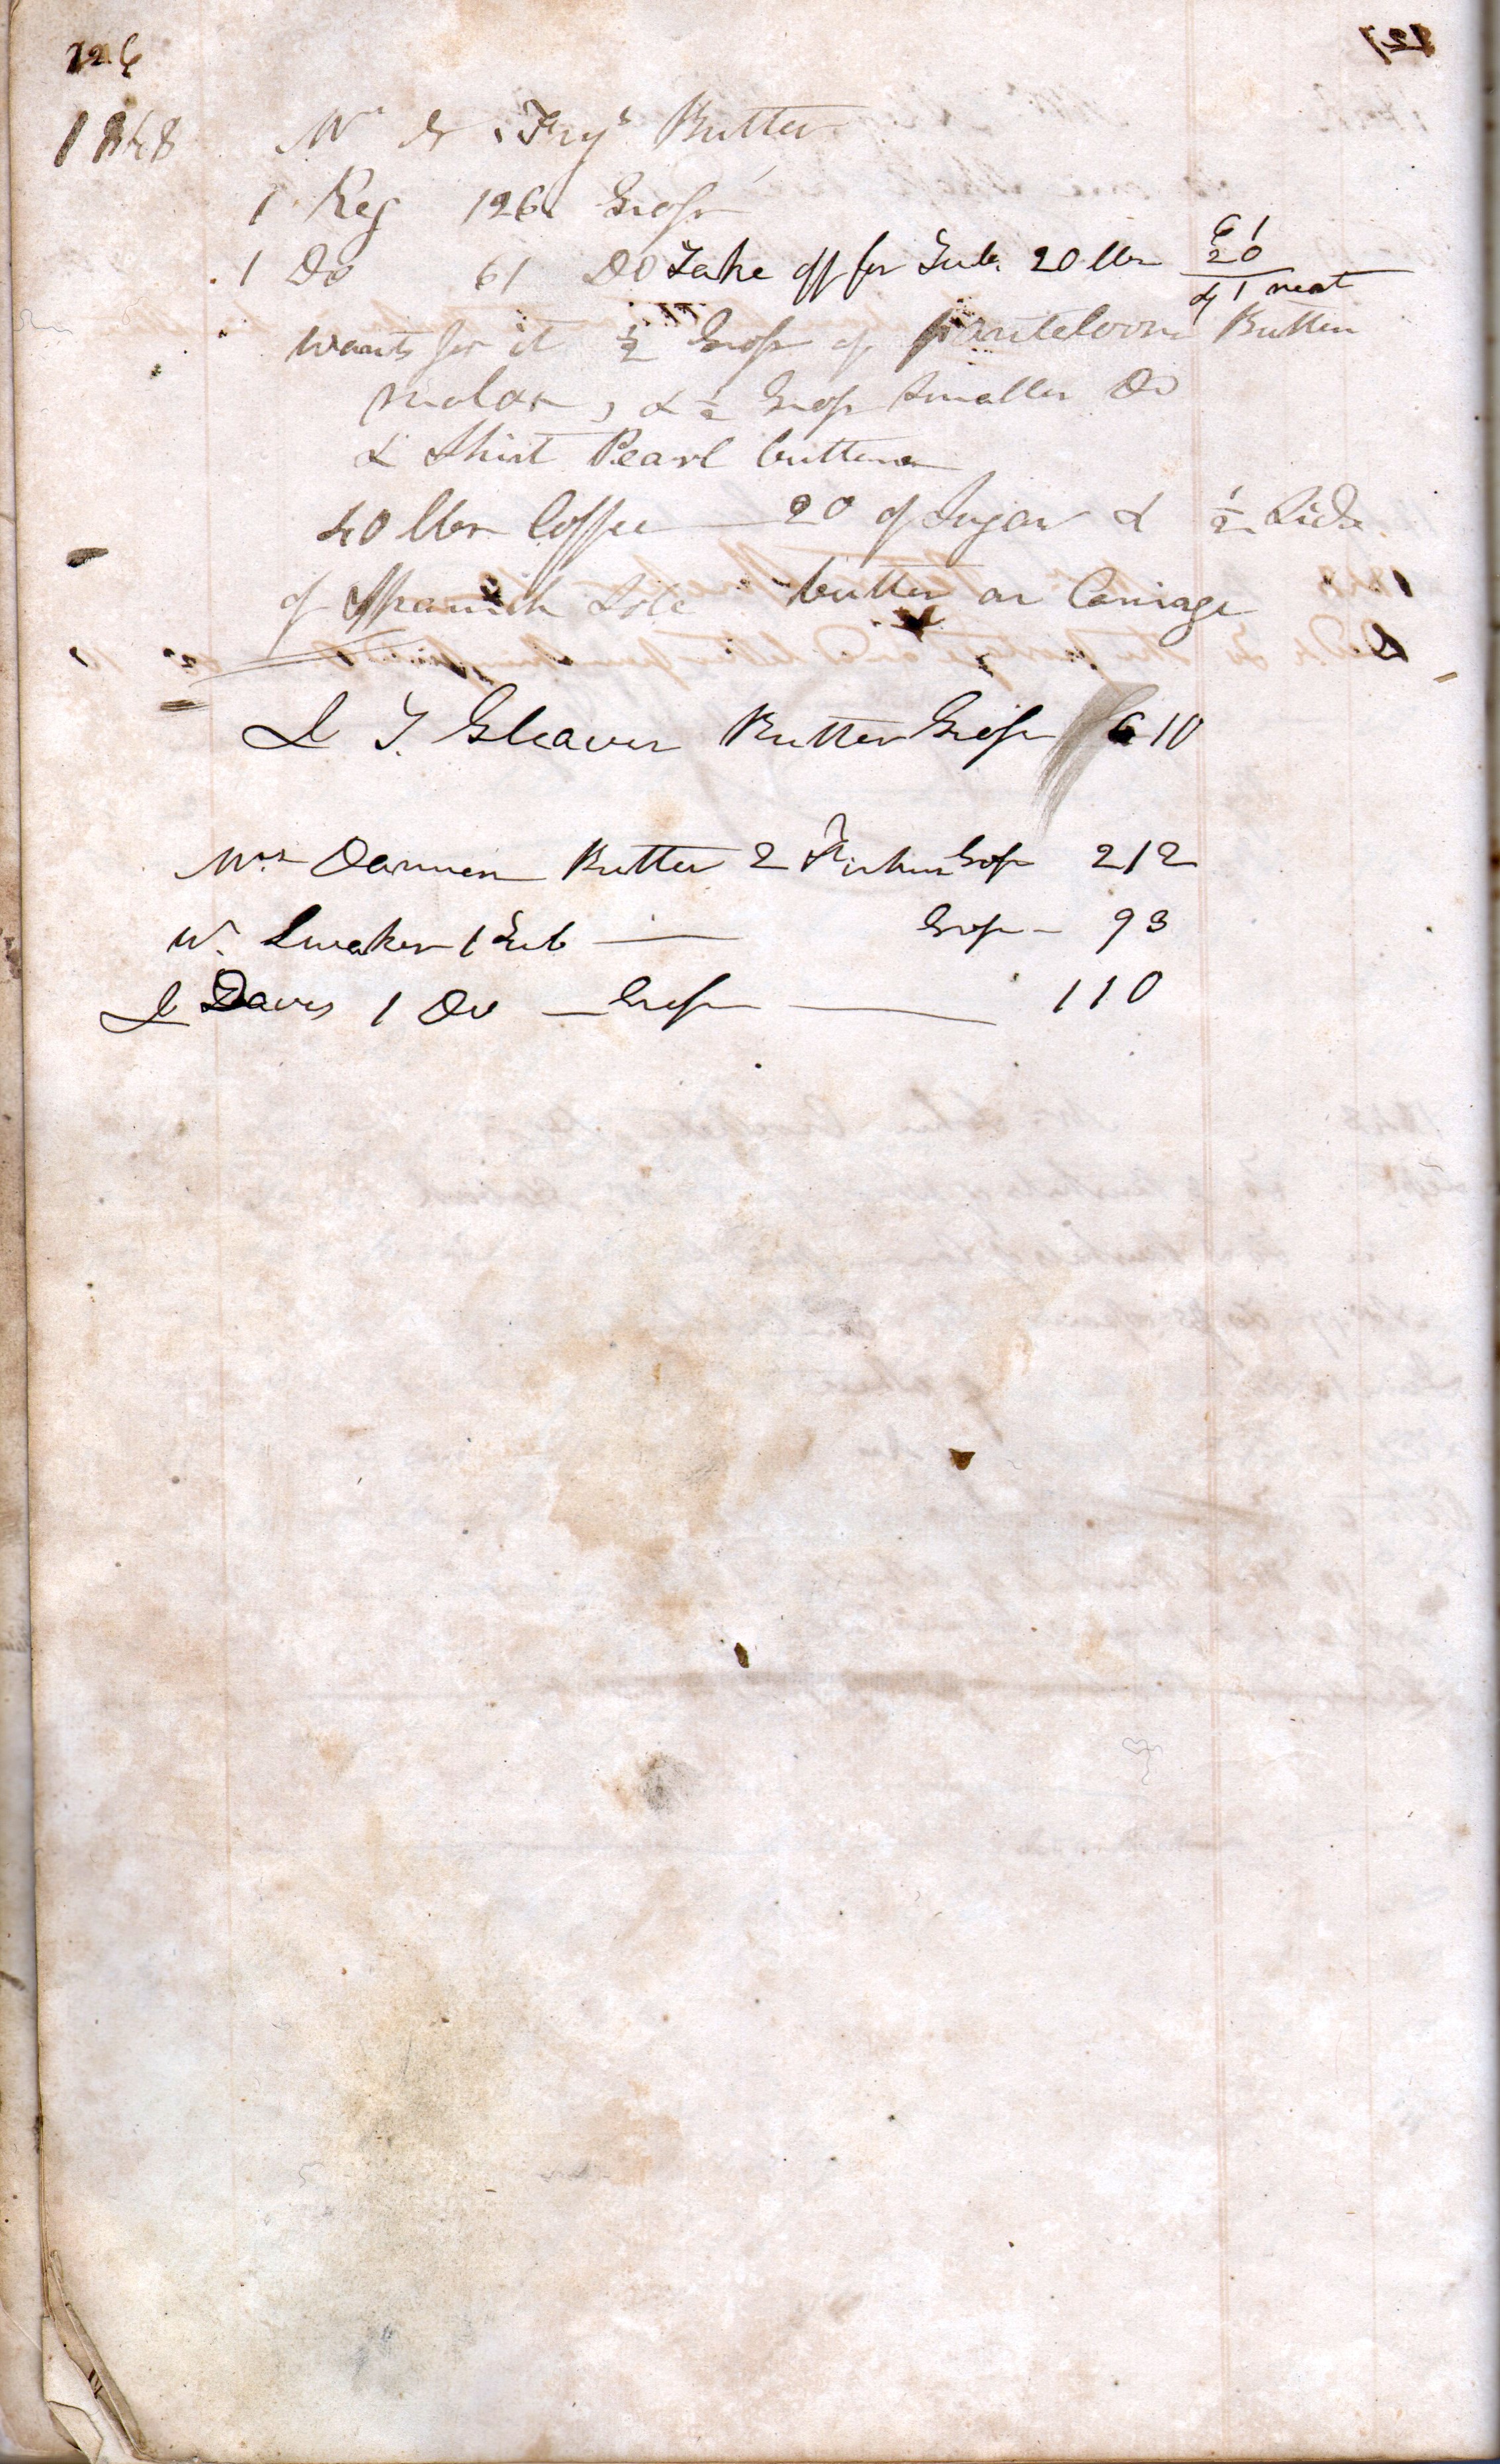 126
1848 Wm & Fry's Butter
1 Keg 126 Gross
1 Do 61 Do Take off for Tub. 20 lbs 61
20
41 neat
wants for it ½ Gross of panteloons Button
, & ½ Gross smaller Do
& Shirt Pearl buttons
40 lbs Coffee 20 of Sugar & ½ Side
of Spanish Sole butter on Carriage
J T. Gleaves Butter Gross 610
Mrs Butter 2 Firkins Gross 212
W. 1 Tub — Gross — 93
J Davis 1 Do — Gross — 110